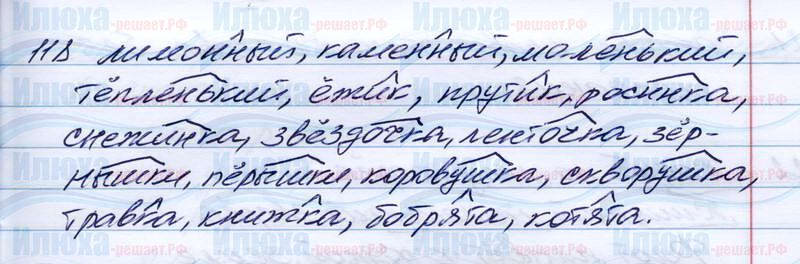 118 лимонный, каменный, маленький,
тёпленький, ёжик, прутик, росинка,
снежинка, звёздочка, ленточка, зёр-
нышки, пёрышки, коровушка, скворушка,
травка, книжка, бобрята, котята.